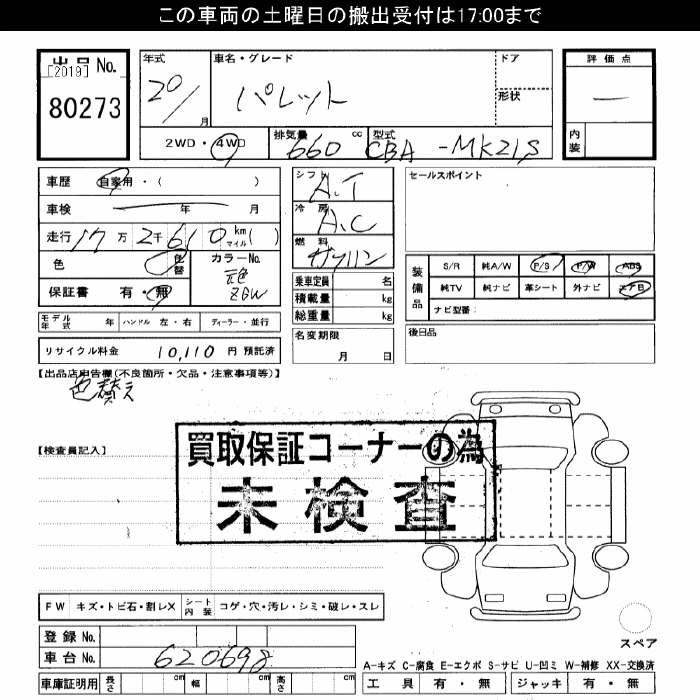 この車両の土曜日の搬出受付は17:00まで
出品 No.
[2019]
80273
年式
20/
月
車名・グレード
パレット
ドア
形状
評価点
—
内装
2WD・4WD
排気量
660 cc
型式
CBA-MK21S
車歴 自家用・( )
車検 年 月
走行 17万2千610 km マイル( )
色 色替
カラーNo.
元色
ZGW
保証書 有・無
シフト
A.T
冷房
A.C
燃料
ガソリン
乗車定員 名
積載量 kg
総重量 kg
セールスポイント
装備品
S/R 純A/W P/S P/W ABS
純TV 純ナビ 革シート 外ナビ エアB
ナビ型番:
モデル年式 年 ハンドル 左・右 ディーラー・並行
名変期限
月 日
後日品
リサイクル料金 10,110 円 預託済
【出品店申告欄(不良箇所・欠品・注意事項等)】
色替え
買取保証コーナーの為
未検査
【検査員記入】
FW キズ・トビ石・割レX シート内装 コゲ・穴・汚レ・シミ・破レ・スレ
登録 No.
車台 No. 620698
スペア
A-キズ C-腐食 E-エクボ S-サビ U-凹ミ W-補修 XX-交換済
車庫証明用 長さ cm 幅 cm 高さ cm
工具 有・無 ジャッキ 有・無